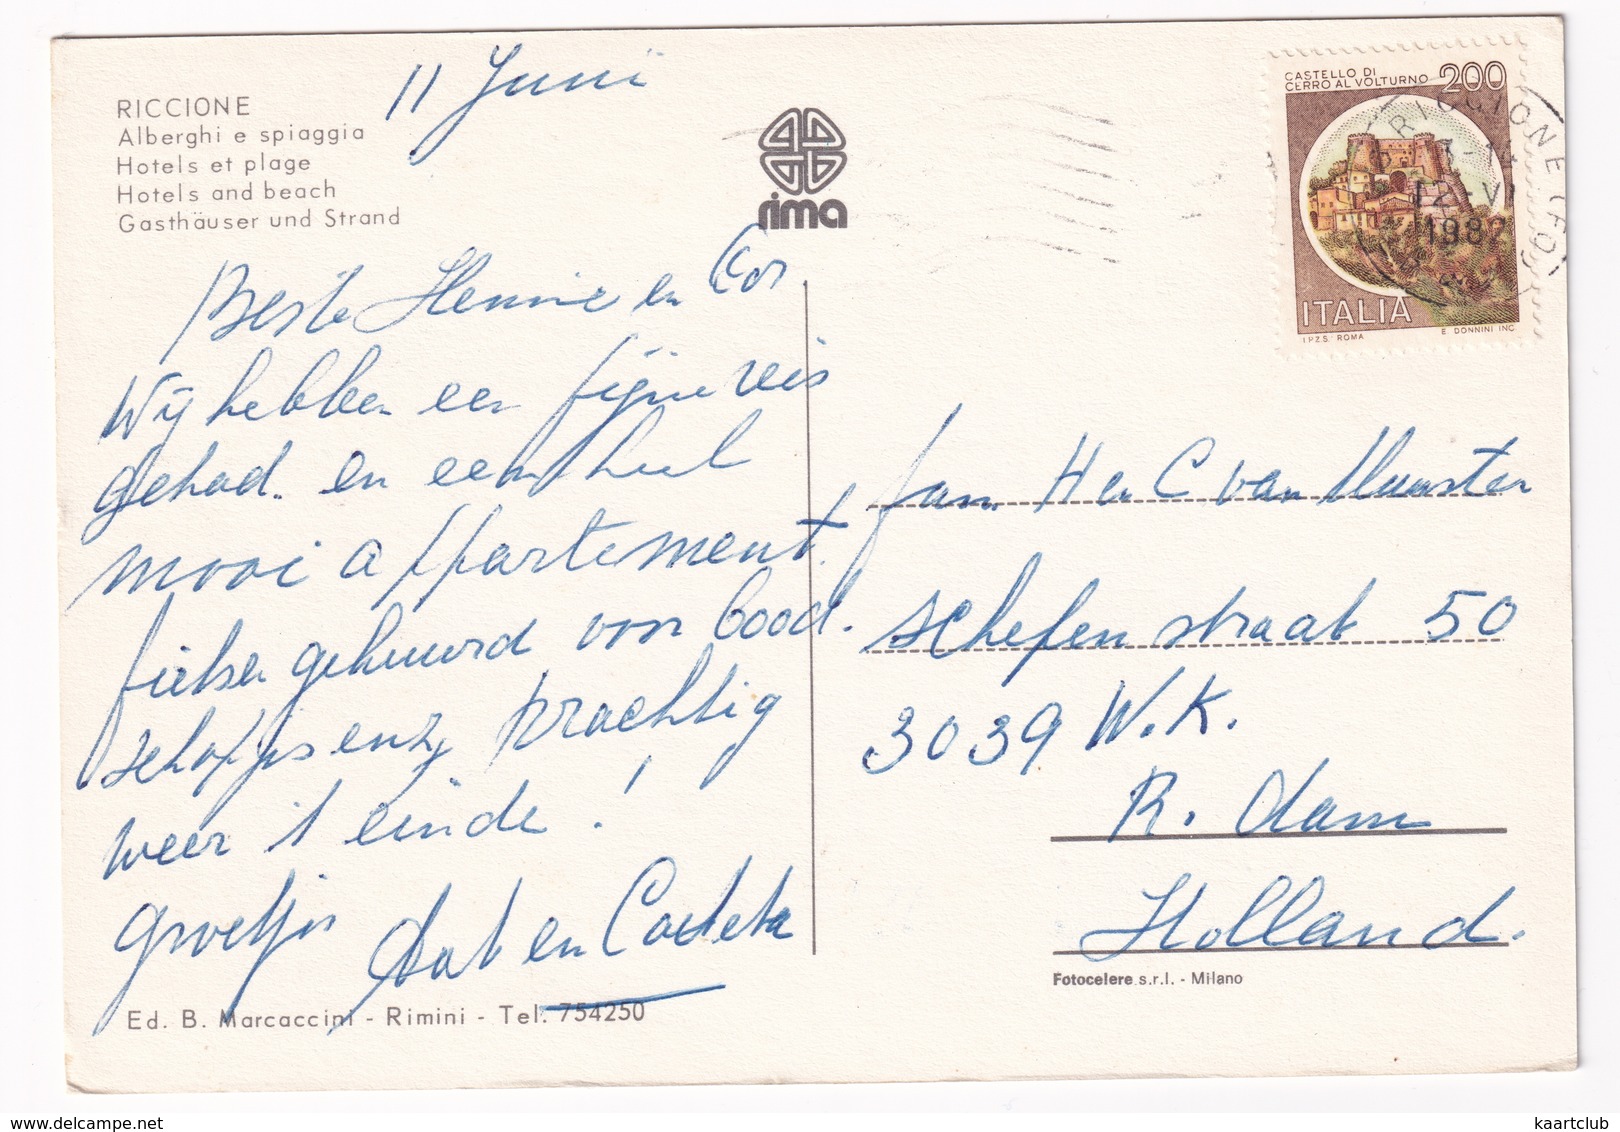 11 Juni
RICCIONE
Alberghi e spiaggia
Hotels et plage
Hotels and beach
Gasthäuser und Strand
rima
CASTELLO DI
CERRO AL VOLTURNO 200
ITALIA
I.P.Z.S. ROMA E. DONNINI INC.
RICCIONE (FO)
12-VI
198
Beste Hennie en Cor
Wij hebben een fijne reis
gehad. en een heel
mooi appartement.
fietsen gehuurd voor bood.
schapjes enz, prachtig
weer 't einde!
groetjes Aat en
Fam. H en C van Munster
schefenstraat 50
3039 W.K.
R. dam
Holland.
Fotocelere s.r.l. - Milano
Ed. B. Marcaccini - Rimini - Tel. 754250
kaartclub